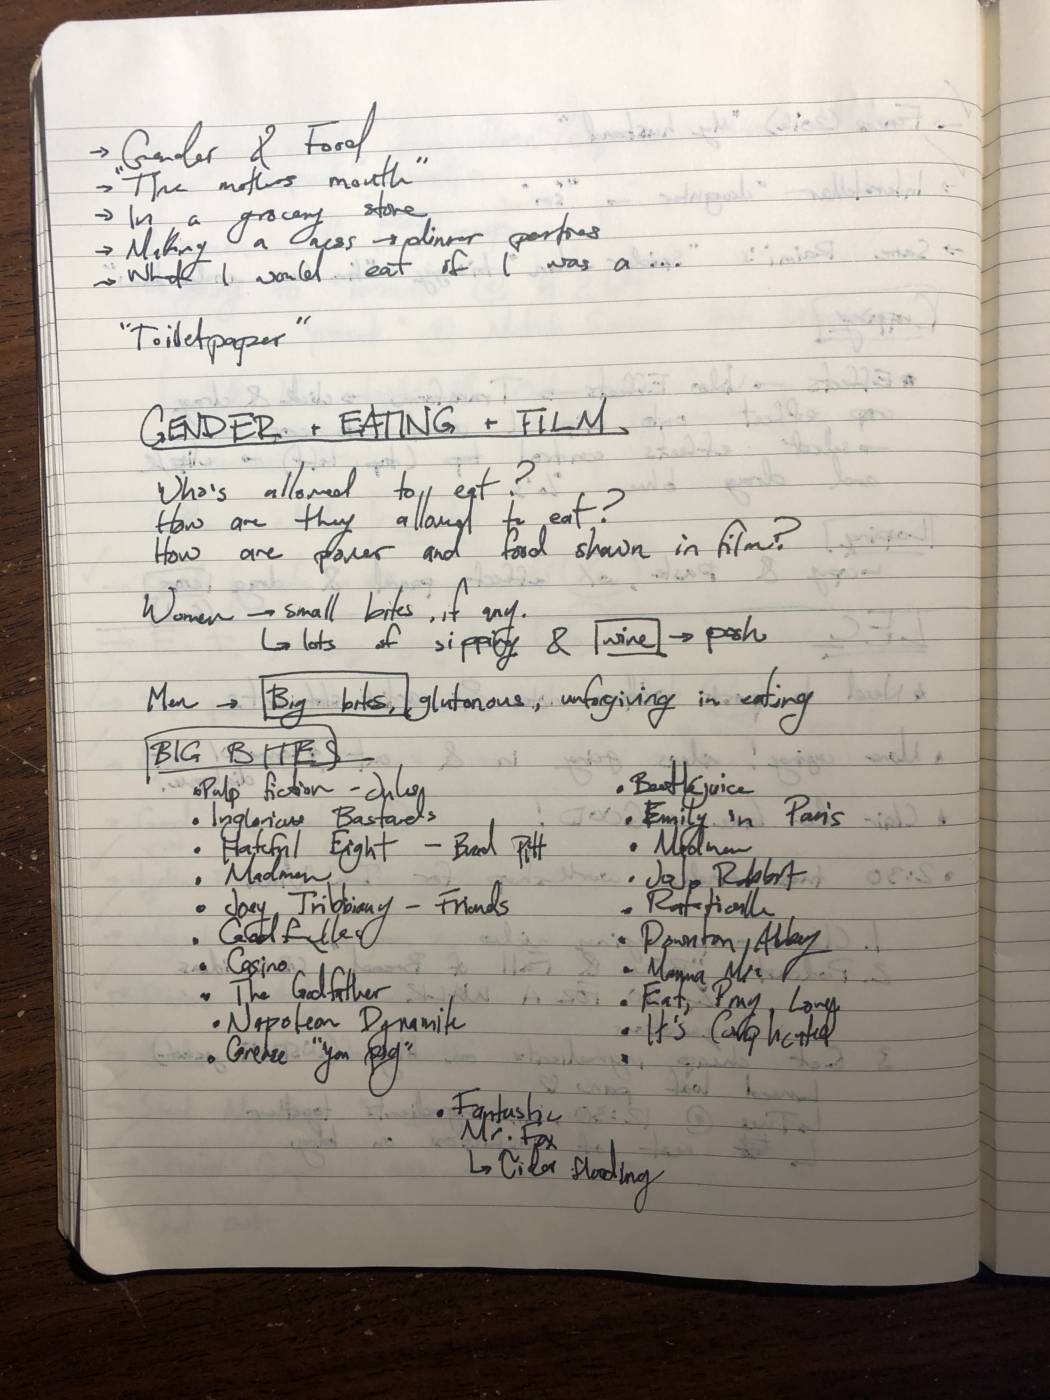 → Gender & Food
→ "The mothers mouth"
→ In a grocery store
→ Making a mess → dinner parties
→ What I would eat if I was a ...
"Toiletpaper"
GENDER + EATING + FILM
Who's allowed to eat?
How are they allowed to eat?
How are power and food shown in film?
Women → small bites, if any.
↳ lots of sipping & wine → posh
Men → Big bites, glutonous, unforgiving in eating
BIG BITES
• Pulp fiction -
• Inglorious Bastards
• Hateful Eight - Brad Pitt
• Madmen
• Joey Tribbiany - Friends
• Goodfellas
• Casino
• The Godfather
• Napolean Dynamite
• Grease "you pig"
• Beetlejuice
• Emily in Paris
• Madmen
• JoJo Rabbit
•
• Downton Abbey
• Mamma Mia
• Eat, Pray, Love
• It's Complicated
•
• Fantastic
Mr. Fox
↳ Cider flooding